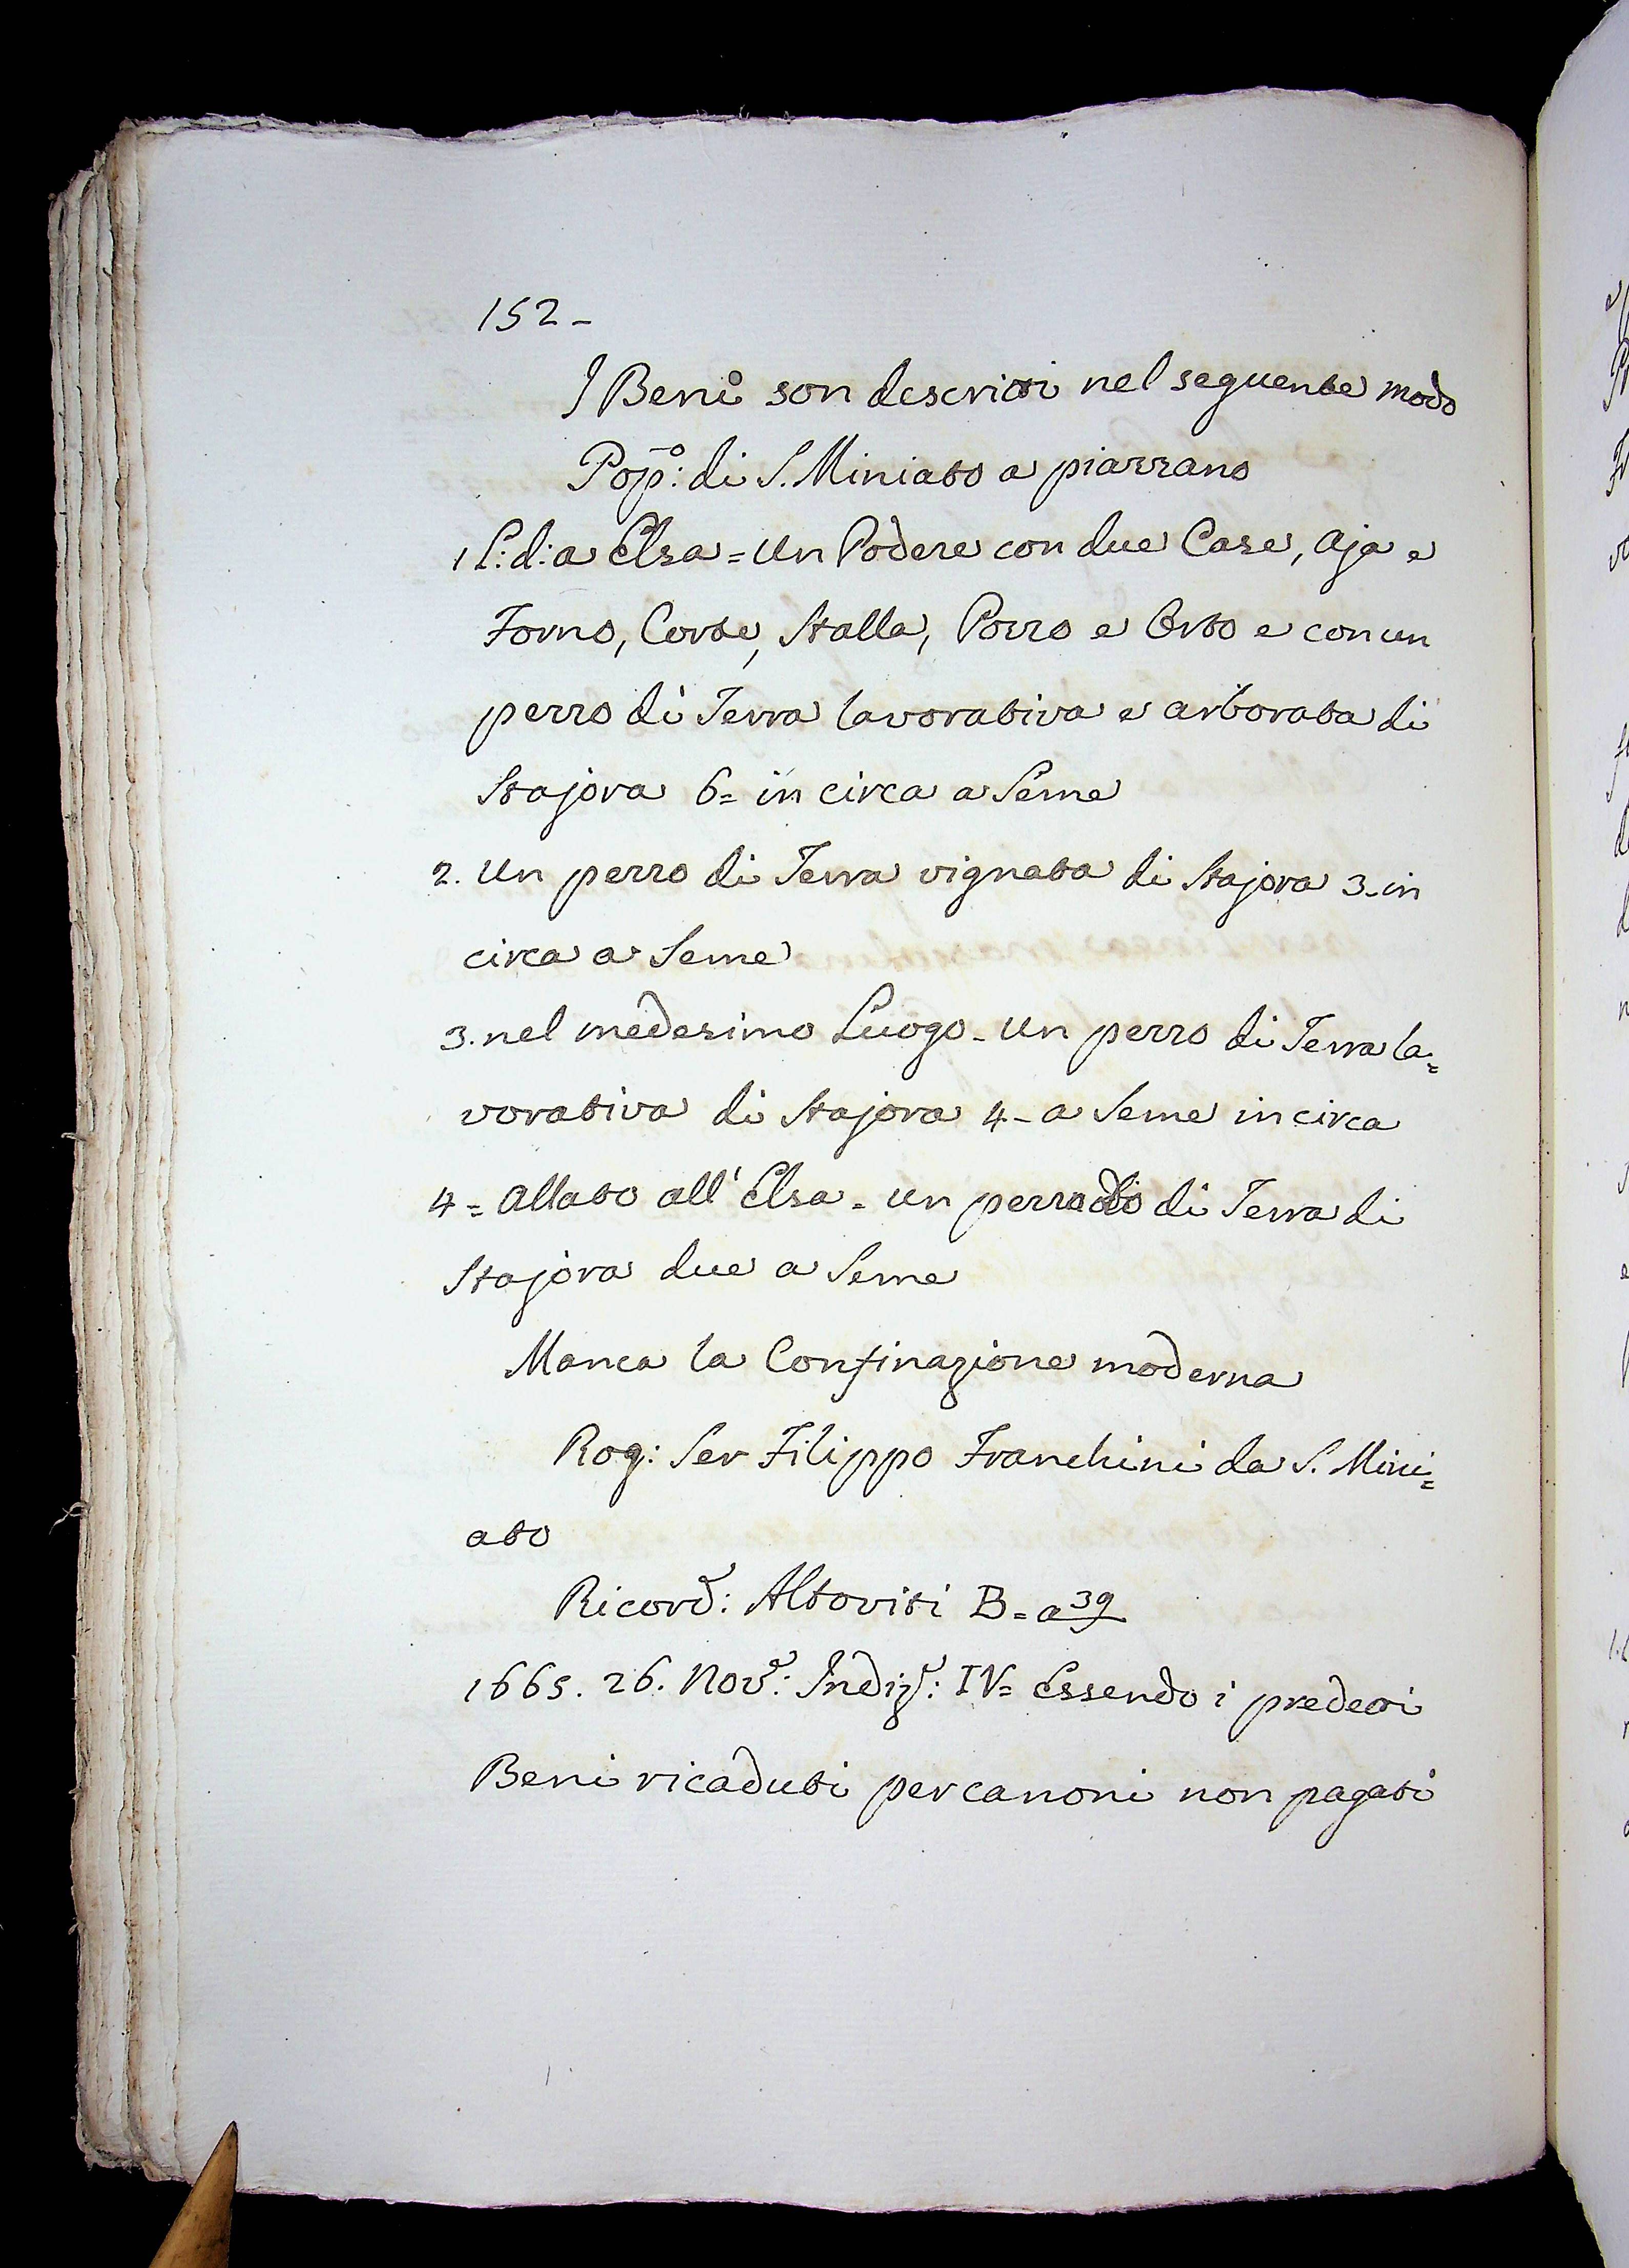 152 -
I Beni son descritti nel seguente modo
Pop:º di S. Miniato a piazzano
1 L: d: a Elsa = Un Podere con due Case, Aja e
Forno, Corte, Stalla, Pozzo e Orto e con un
pezzo di Terra lavorativa e arborata di
Stajora 6= in circa a Seme
2. Un pezzo di Terra vignata di Stajora 3- in
circa a Seme
3. nel medesimo Luogo - Un pezzo di Terra la=
vorativa di Stajora 4- a Seme in circa
4 = Allato all' Elsa - un pezzo di Terra di
Stajora due a Seme
Manca la Confinazione moderna
Rog: Ser Filippo Franchini da S. Mini=
ato
Ricord: Altoviti B = a 39
1665. 26. Nov: Indiz: IV= Essendo i predetti
Beni ricaduti per canoni non pagati